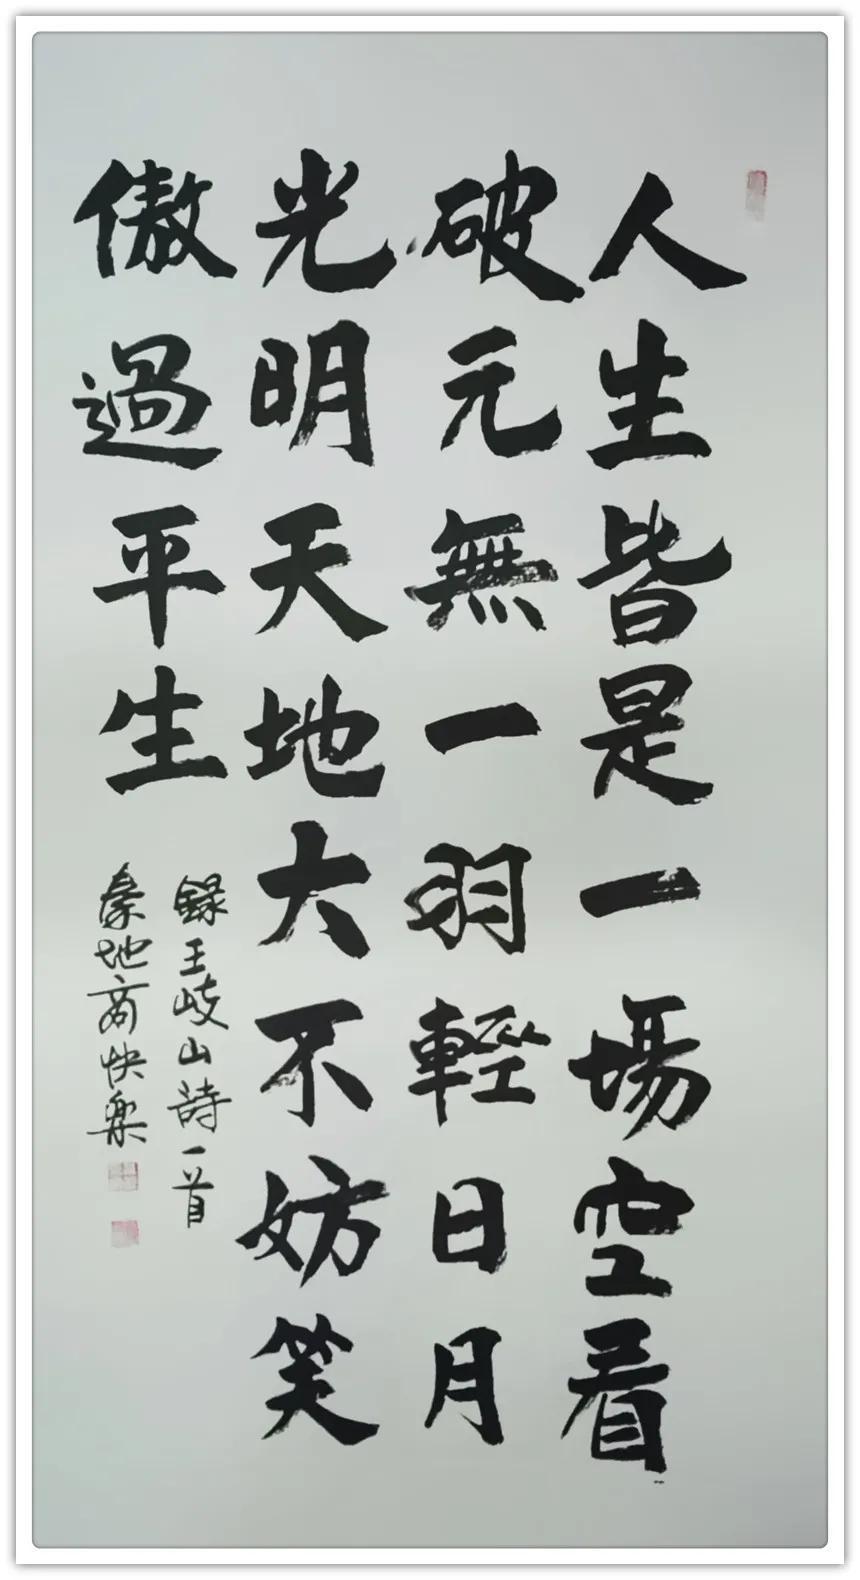 人生皆是一場空看
破元無一羽輕日月
光明天地大不妨笑
傲過平生
錄王岐山詩一首
秦地商快樂